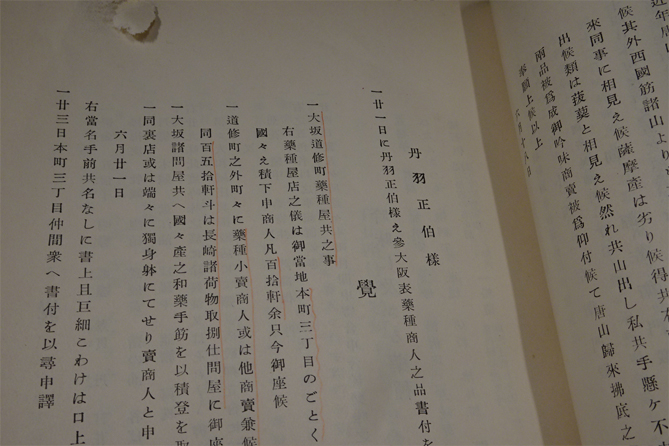 近年唐山
候共外西國筋諸山より
來同事に相見え候薩摩産は劣り候得共本
出候類は莪蒁と相見え候然れ共山出し私共手懸ケ不
兩品被爲成御吟味商賣被爲仰付候て唐山歸來拂底之
奉願上候以上
六月十八日
丹羽正伯樣
一廿一日に丹羽正伯樣え參大阪表藥種商人之品書付を
覺
一大坂道修町藥種屋共之事
右藥種屋店之儀は御當地本町三丁目のごとく
國々え積下申商人凡百拾軒余只今御座候
一道修町之外町々に藥種小賣商人或は他商賣兼候
同百五拾軒斗は長崎諸荷物取捌仕問屋に御座
一大坂諸問屋共へ國々產之和藥手筋を以積登を
一同裏店或は端々に獨身躰にてせり賣商人と申
六月廿一日
右當名手前共名なしに書上且巨細こわけは口上
一廿三日本町三丁目仲間衆へ書付を以尋申譯